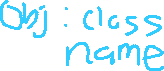 Obj : class
name